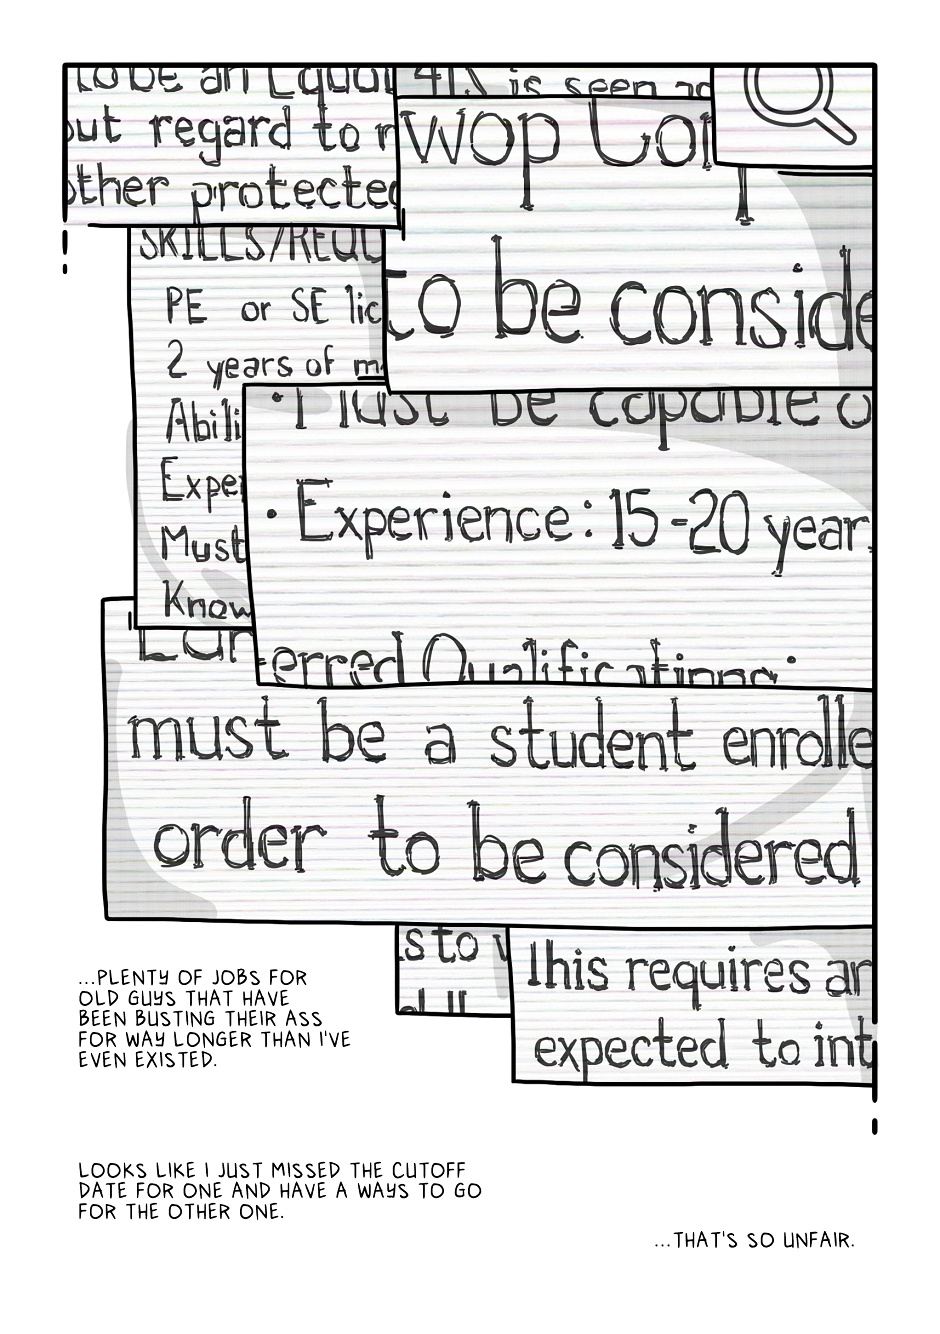 to be an Equal
out regard to r
other protected
is seen
to be conside
SKILLS/REQU
PE or SE lic
2 years of m
Abili
Exper
Must
Know
Must be capable o
• Experience: 15-20 year
erred Qualifications:
must be a student enrolle
order to be considered
s to
This requires an
expected to int
...PLENTY OF JOBS FOR
OLD GUYS THAT HAVE
BEEN BUSTING THEIR ASS
FOR WAY LONGER THAN I'VE
EVEN EXISTED.
LOOKS LIKE I JUST MISSED THE CUTOFF
DATE FOR ONE AND HAVE A WAYS TO GO
FOR THE OTHER ONE.
...THAT'S SO UNFAIR.